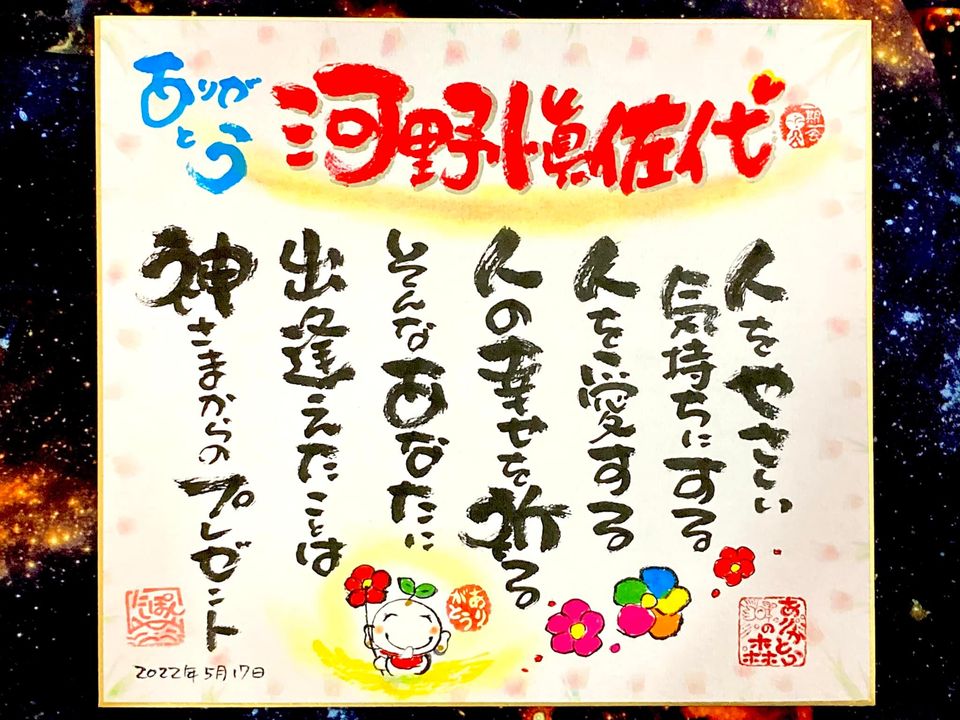 ありがとう
河野愼佐代
人をやさしい
気持ちにする
人を愛する
人の幸せを祈る
そんなあなたに
出逢えたことは
神さまからのプレゼント
ありがとう
ありがとうの森
2022年5月17日